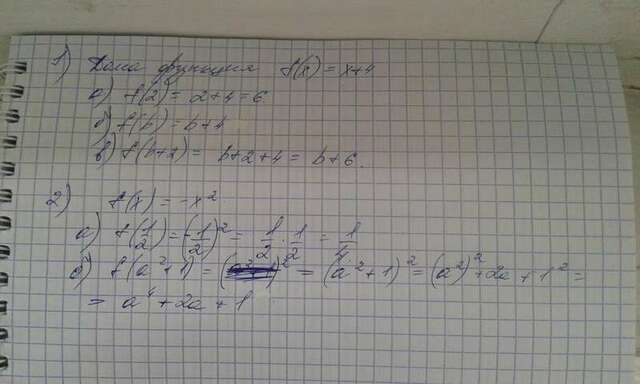 1) Дана функция f(x) = x+4
а) f(2) = 2+4 = 6
б) f(b) = b+4
в) f(b+2) = b+2+4 = b+6.
2) f(x) = -x²
а) f(1/2) = (-1/2)² = 1/2 · 1/2 = 1/4
б) f(a²+1) = ( )² = (a²+1)² = (a²)²+2a+1² =
= a⁴+2a+1